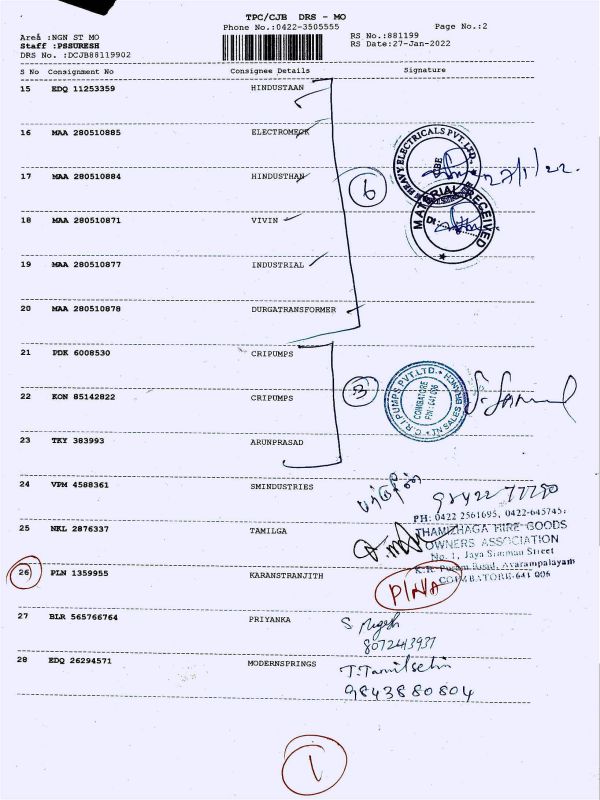 TPC/CJB DRS - MO
Phone No.:0422-3505555 Page No.:2
Area :NGN ST MO RS No.:881199
Staff :PSSURESH RS Date:27-Jan-2022
DRS No. :DCJB88119902
S No Consignment No Consignee Details Signature
15 EDQ 11253359 HINDUSTAAN
16 MAA 280510885 ELECTROMECK
17 MAA 280510884 HINDUSTHAN
18 MAA 280510871 VIVIN
19 MAA 280510877 INDUSTRIAL
20 MAA 280510878 DURGATRANSFORMER
6
HEAVY ELECTRICALS PVT. LTD.
CBE
27/1/22.
MATERIAL RECEIVED
21 PDK 6008530 CRIPUMPS
22 KON 85142822 CRIPUMPS
23 TKY 383993 ARUNPRASAD
3
C.R.I.PUMPS PVT.LTD. TN SALES BRANCH
COIMBATORE
24 VPM 4588361 SMINDUSTRIES
98422 77790
25 NKL 2876337 TAMILGA
PH: 0422 2561695, 0422-645745
THAMIZHAGA HIRE GOODS
OWNERS ASSOCIATION
No. 1, Jaya Street
Road, Avarampalayam
COIMBATORE-641 006
26 PLN 1359955 KARANSTRANJITH
P/NA
27 BLR 565766764 PRIYANKA
8072413937
28 EDQ 26294571 MODERNSPRINGS
9843880804
1